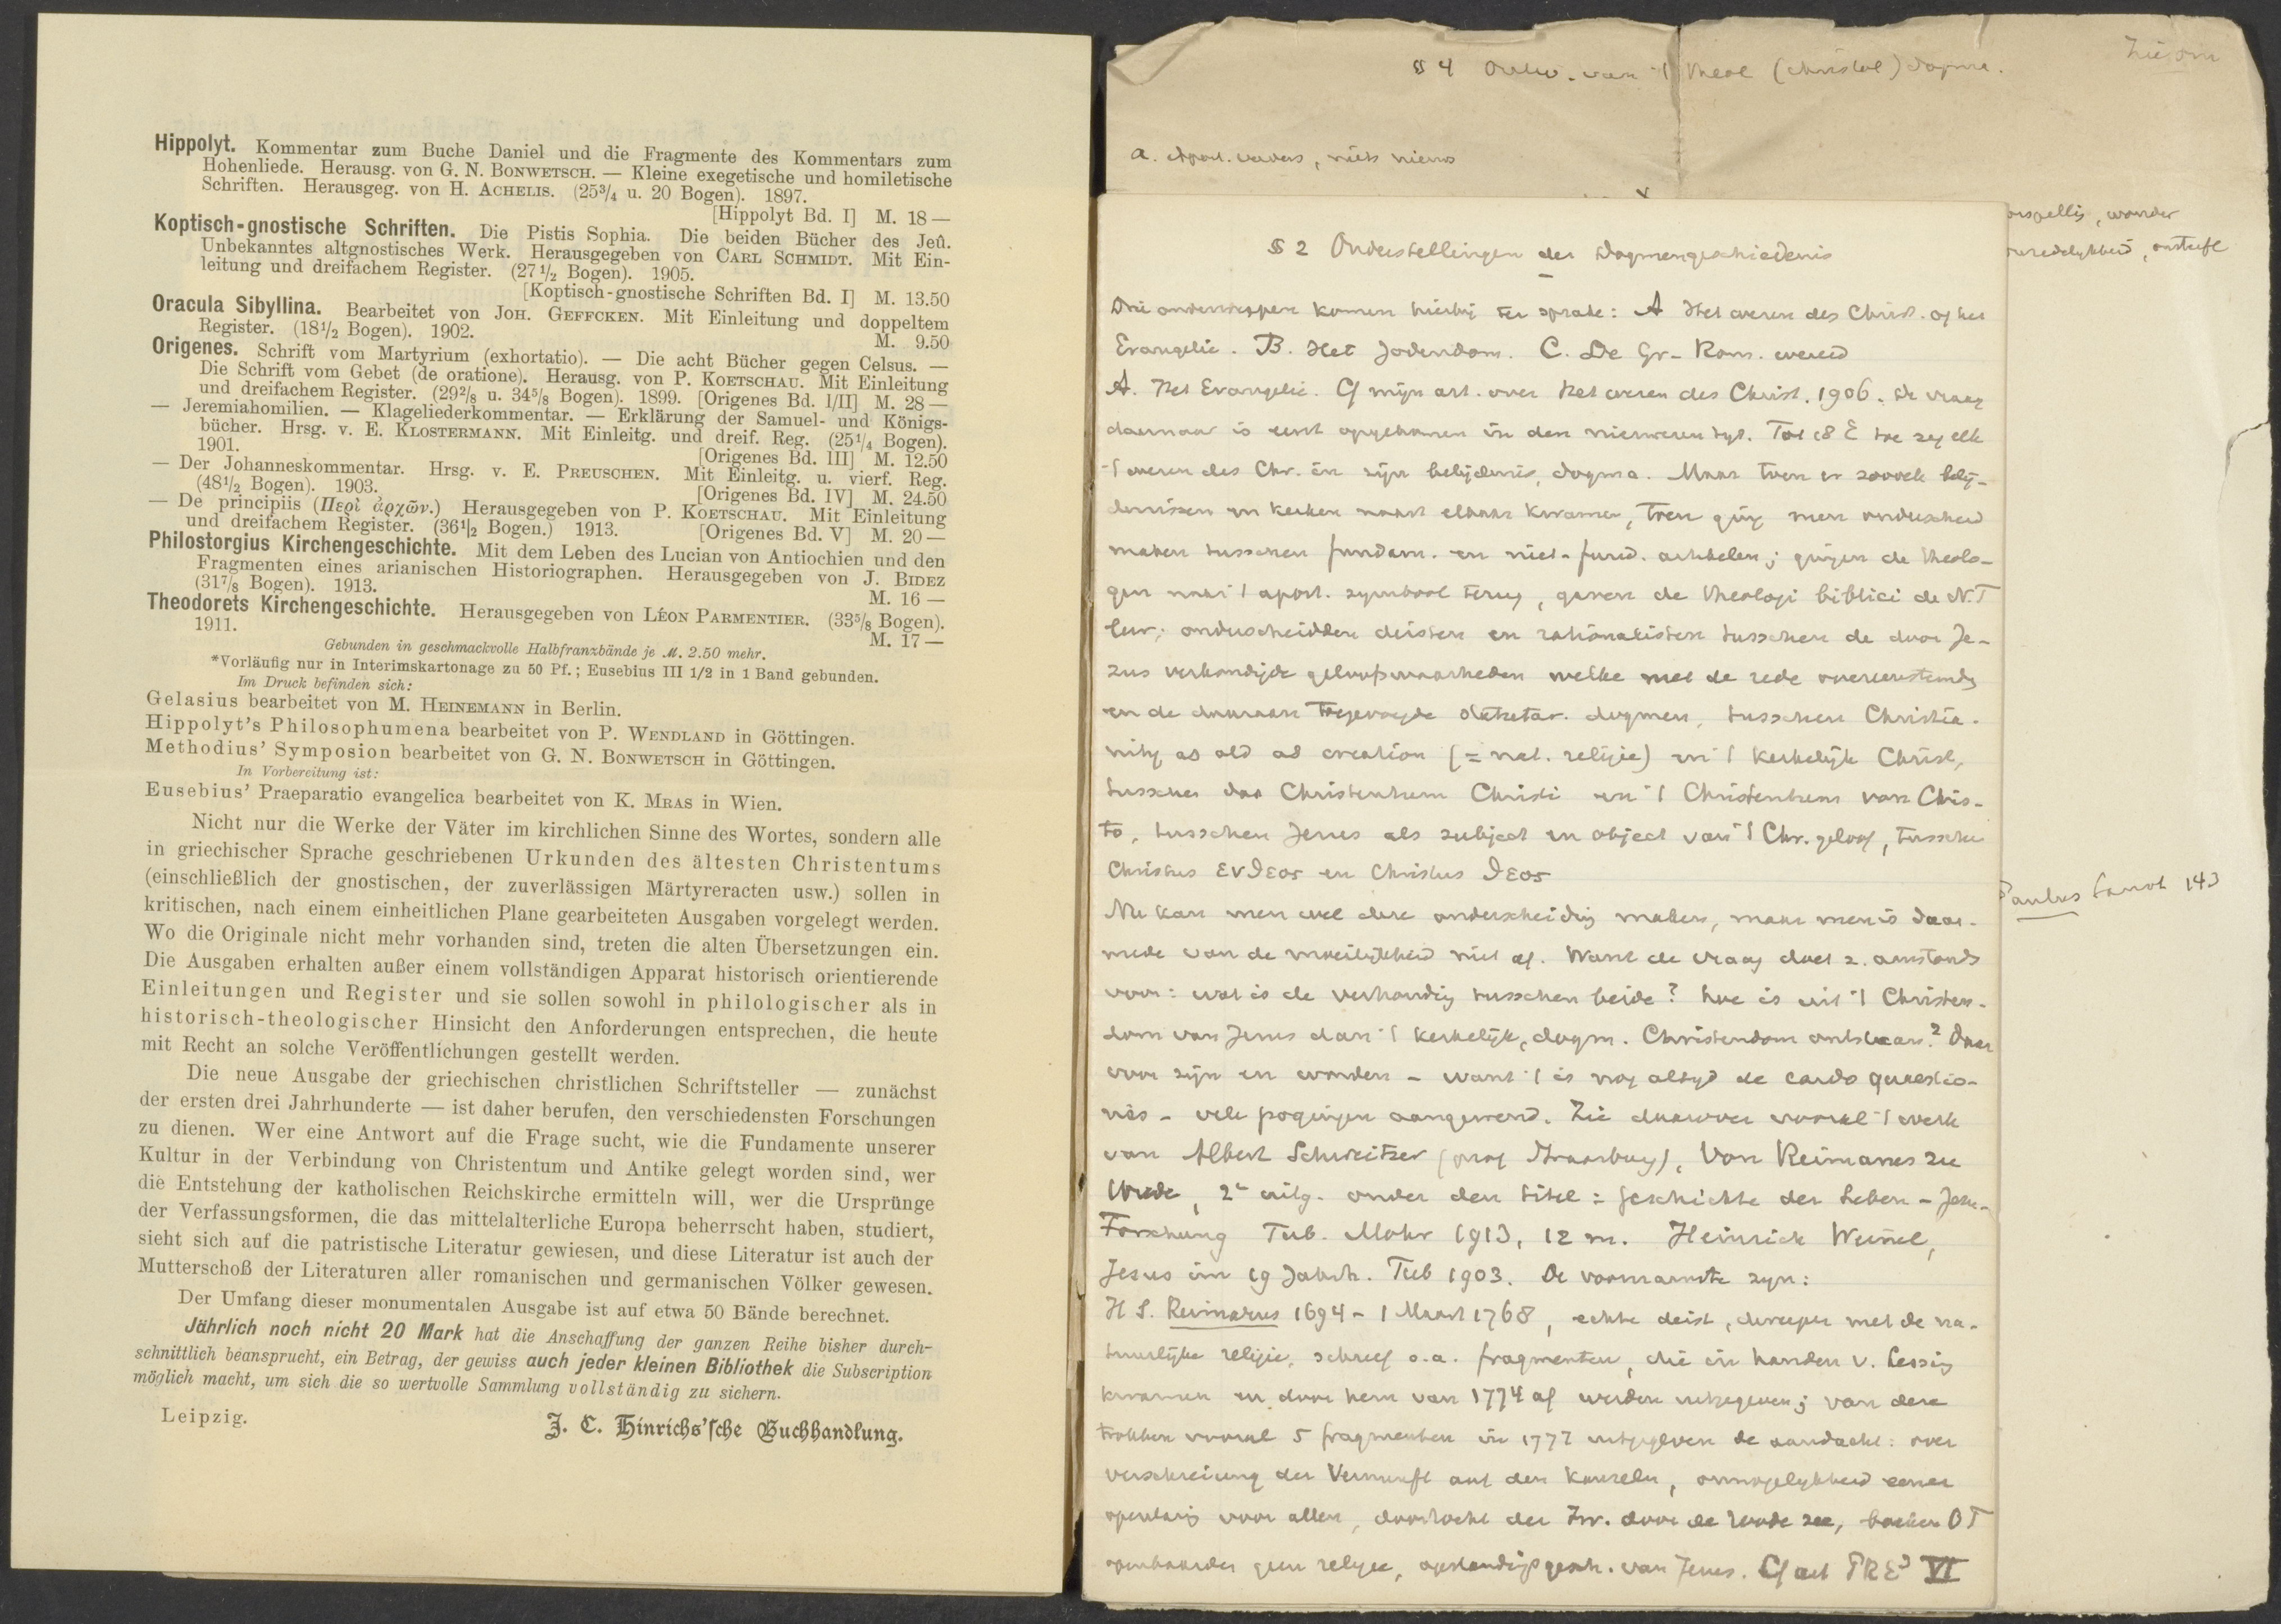 Hippolyt. Kommentar zum Buche Daniel und die Fragmente des Kommentars zum
Hohenliede. Herausg. von G. N. BONWETSCH. — Kleine exegetische und homiletische
Schriften. Herausgeg. von H. ACHELIS. (25³/₄ u. 20 Bogen). 1897.
[Hippolyt Bd. I] M. 18 —
Koptisch-gnostische Schriften. Die Pistis Sophia. Die beiden Bücher des Jeû.
Unbekanntes altgnostisches Werk. Herausgegeben von CARL SCHMIDT. Mit Ein-
leitung und dreifachem Register. (27¹/₂ Bogen). 1905.
[Koptisch-gnostische Schriften Bd. I] M. 13.50
Oracula Sibyllina. Bearbeitet von JOH. GEFFCKEN. Mit Einleitung und doppeltem
Register. (18¹/₂ Bogen). 1902. M. 9.50
Origenes. Schrift vom Martyrium (exhortatio). — Die acht Bücher gegen Celsus. —
Die Schrift vom Gebet (de oratione). Herausg. von P. KOETSCHAU. Mit Einleitung
und dreifachem Register. (29²/₈ u. 34⁵/₈ Bogen). 1899. [Origenes Bd. I/II] M. 28 —
— Jeremiahomilien. — Klageliederkommentar. — Erklärung der Samuel- und Königs-
bücher. Hrsg. v. E. KLOSTERMANN. Mit Einleitg. und dreif. Reg. (25¹/₄ Bogen).
1901. [Origenes Bd. III] M. 12.50
— Der Johanneskommentar. Hrsg. v. E. PREUSCHEN. Mit Einleitg. u. vierf. Reg.
(48¹/₂ Bogen). 1903. [Origenes Bd. IV] M. 24.50
— De principiis (Περὶ ἀρχῶν.) Herausgegeben von P. KOETSCHAU. Mit Einleitung
und dreifachem Register. (36¹/₂ Bogen.) 1913. [Origenes Bd. V] M. 20 —
Philostorgius Kirchengeschichte. Mit dem Leben des Lucian von Antiochien und den
Fragmenten eines arianischen Historiographen. Herausgegeben von J. BIDEZ
(31⁷/₈ Bogen). 1913. M. 16 —
Theodorets Kirchengeschichte. Herausgegeben von LÉON PARMENTIER. (33⁵/₈ Bogen).
1911. M. 17 —
Gebunden in geschmackvolle Halbfranzbände je M. 2.50 mehr.
*Vorläufig nur in Interimskartonage zu 50 Pf.; Eusebius III 1/2 in 1 Band gebunden.
Im Druck befinden sich:
Gelasius bearbeitet von M. HEINEMANN in Berlin.
Hippolyt's Philosophumena bearbeitet von P. WENDLAND in Göttingen.
Methodius' Symposion bearbeitet von G. N. BONWETSCH in Göttingen.
In Vorbereitung ist:
Eusebius' Praeparatio evangelica bearbeitet von K. MRAS in Wien.
Nicht nur die Werke der Väter im kirchlichen Sinne des Wortes, sondern alle
in griechischer Sprache geschriebenen Urkunden des ältesten Christentums
(einschließlich der gnostischen, der zuverlässigen Märtyreracten usw.) sollen in
kritischen, nach einem einheitlichen Plane gearbeiteten Ausgaben vorgelegt werden.
Wo die Originale nicht mehr vorhanden sind, treten die alten Übersetzungen ein.
Die Ausgaben erhalten außer einem vollständigen Apparat historisch orientierende
Einleitungen und Register und sie sollen sowohl in philologischer als in
historisch-theologischer Hinsicht den Anforderungen entsprechen, die heute
mit Recht an solche Veröffentlichungen gestellt werden.
Die neue Ausgabe der griechischen christlichen Schriftsteller — zunächst
der ersten drei Jahrhunderte — ist daher berufen, den verschiedensten Forschungen
zu dienen. Wer eine Antwort auf die Frage sucht, wie die Fundamente unserer
Kultur in der Verbindung von Christentum und Antike gelegt worden sind, wer
die Entstehung der katholischen Reichskirche ermitteln will, wer die Ursprünge
der Verfassungsformen, die das mittelalterliche Europa beherrscht haben, studiert,
sieht sich auf die patristische Literatur gewiesen, und diese Literatur ist auch der
Mutterschoß der Literaturen aller romanischen und germanischen Völker gewesen.
Der Umfang dieser monumentalen Ausgabe ist auf etwa 50 Bände berechnet.
Jährlich noch nicht 20 Mark hat die Anschaffung der ganzen Reihe bisher durch-
schnittlich beansprucht, ein Betrag, der gewiss auch jeder kleinen Bibliothek die Subscription
möglich macht, um sich die so wertvolle Sammlung vollständig zu sichern.
Leipzig. J. C. Hinrichs'sche Buchhandlung.
Zie om
§ 4 Ontw. van 't theol (christol) dogma.
a. Apost. vaders, niets nieuws
wonder
Paulus 143
§ 2 Onderstellingen der Dogmengeschiedenis
Drie onderwerpen komen hierbij ter sprake: A Het wezen des Christ. of het
Evangelie. B. Het Jodendom. C. De Gr-Rom. wereld
A. Het Evangelie. Cf mijn art. over Het wezen des Christ. 1906. De vraag
daarnaar is eerst opgekomen in den nieuweren tyd. Tot 18 E toe zag elk
't wezen des Chr. in zijn belijdenis, dogma. Maar toen er zooveel belij-
denissen en kerken naast elkaar kwamen, toen ging men onderscheid
maken tusschen fundam. en niet-fund. artikelen; gingen de theolo-
gen naar 't apost. symbool terug, gaven de theologi biblici de N.T
leer; onderscheidden deisten en rationalisten tusschen de door Je-
zus verkondigde geloofswaarheden welke met de rede overeenstemdy
en de daaraan toegevoegde dogmen, tusschen Christia-
nity as old as creation (= nat. religie) en 't kerkelijk Christ,
tusschen das Christenthum Christi en 't Christenthum von Chris-
to, tusschen Jezus als subject en object van 't Chr. geloof, tusschen
Christus ενθεος en Christus θεος
Nu kan men wel deze onderscheidig maken, maar men is daar-
mede van de moeilijkheid niet af. Want de vraag doet z. aanstonds
voor: wat is de verhoudig tusschen beide? hoe is uit 't Christen-
dom van Jezus dan 't kerkelijk, dogm. Christendom ontstaan? Daar
voor zijn en worden - want 't is nog altyd de cardo quaestio-
nis - vele pogingen aangewend. Zie daarover vooral 't werk
van Albert Schweitzer (prof Straatsburg), Von Reimarus zu
Wrede, 2e uitg. onder den titel: Geschichte der Leben-Jesu-
Forschung Tub. Mohr 1913, 12 m. Heinrich Weinel,
Jesus im 19 Jahrh. Tub 1903. De voornaamste zyn:
H S. Reimarus 1694 - 1 Maart 1768, echte deist, dweepte met de na-
tuurlijke religie, schreef o.a. fragmenten, die in handen v. Lessing
kwamen en door hem van 1774 af werden uitgegeven; van deze
trokken vooral 5 fragmenten in 1777 uitgegeven de aandacht: over
Verschreiung der Vernunft auf den Kanzeln, onmogelykheid eener
openbarig voor allen, doortocht der Isr. door de roode zee, boeken OT
openbaarden geen religie, opstandigsgesch. van Jezus. Cf art PRE³ VI